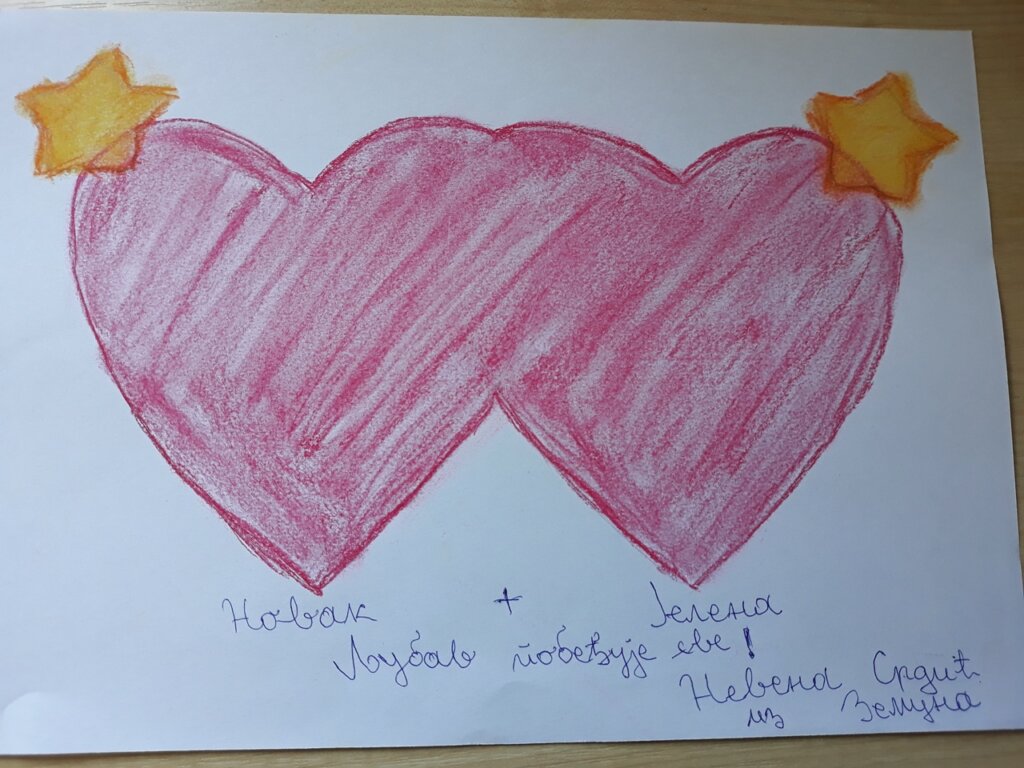 Новак + Јелена
Љубав побеђује све!
Невена Срдић
из Земуна